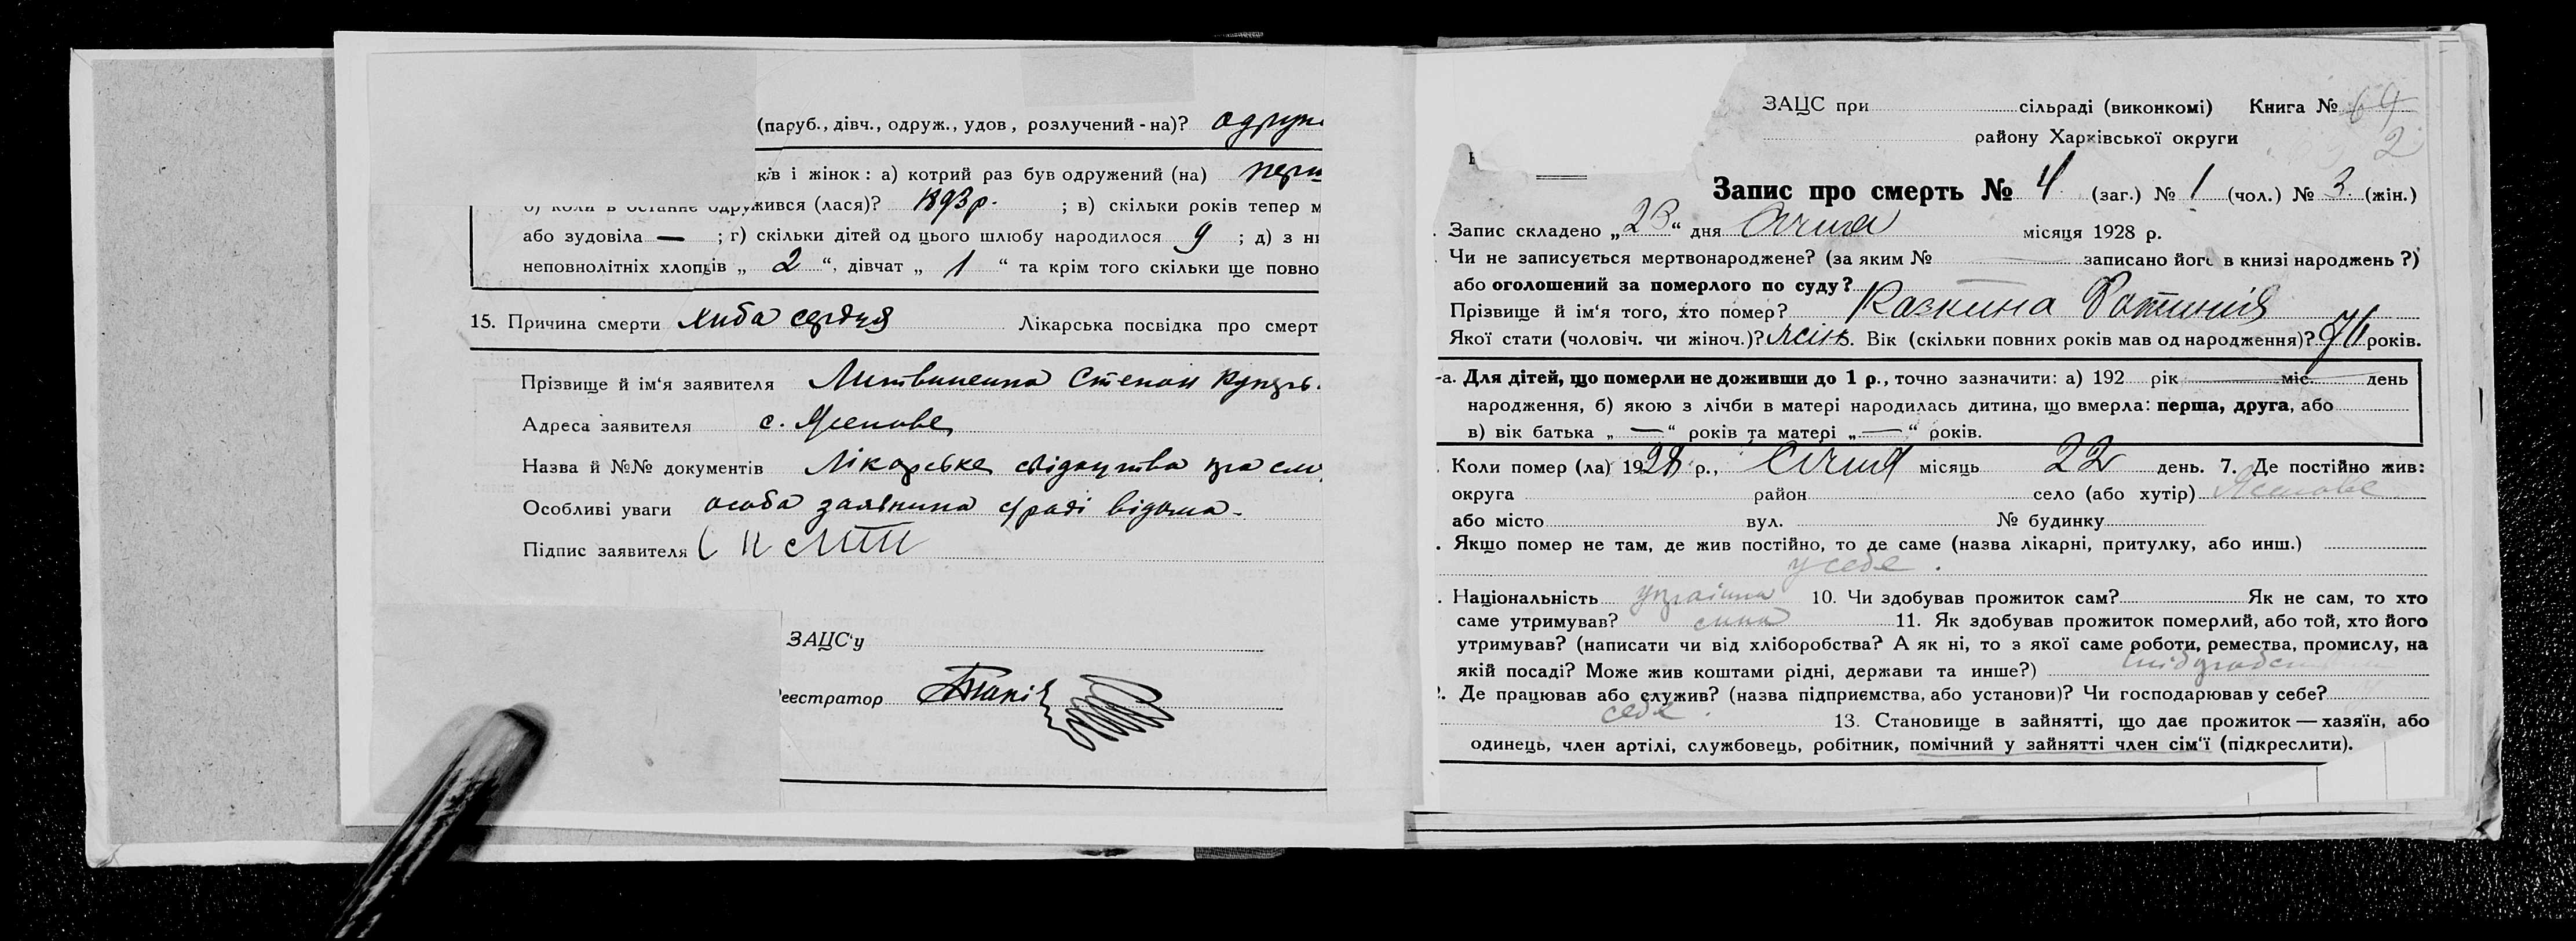 (паруб., дівч., одруж., удов, розлучений-на)? одруж
ків і жінок: а) котрий раз був одружений (на) перш
б) коли в останнє одружився (лася)? 1893 р. ; в) скільки років тепер м
або зудовіла — ; г) скільки дітей од цього шлюбу народилося 9 ; д) з ни
неповнолітніх хлопців „ 2 “, дівчат „ 1 “ та крім того скільки ще повно
15. Причина смерти хиба серця Лікарська посвідка про смерт
Прізвище й ім'я заявителя Литвиненко Степан
Адреса заявителя с.
Назва й №№ документів Лікарське свідоцтво про сме
Особливі уваги особа заявника с/раді відома.
Підпис заявителя
ЗАЦС'у
еєстратор
ЗАЦС при сільраді (виконкомі) Книга № 64
2
району Харківської округи
Запис про смерть № 4 (заг.) № 1 (чол.) № 3. (жін.)
Запис складено „23“ дня Січня місяця 1928 р.
Чи не записується мертвонароджене? (за яким № — записано його в книзі народжень?)
або оголошений за померлого по суду? —
Прізвище й ім'я того, хто помер? Казкина Фотинія
Якої стати (чоловіч. чи жіноч.)? жін. Вік (скільки повних років мав од народження)? 76 років.
-а. Для дітей, що померли не доживши до 1 р., точно зазначити: а) 192 рік — міс. день
народження, б) якою з лічби в матері народилась дитина, що вмерла: перша, друга, або
в) вік батька „ — “ років та матері „ — “ років.
Коли помер (ла) 1928 р., Січня місяць 22 день. 7. Де постійно жив:
округа район село (або хутір)
або місто вул. № будинку
. Якщо помер не там, де жив постійно, то де саме (назва лікарні, притулку, або инш.)
у себе.
. Національність українка 10. Чи здобував прожиток сам? Як не сам, то хто
саме утримував? сина 11. Як здобував прожиток померлий, або той, хто його
утримував? (написати чи від хліборобства? А як ні, то з якої саме роботи, ремества, промислу, на
якій посаді? Може жив коштами рідні, держави та инше?)
2. Де працював або служив? (назва підприємства, або установи)? Чи господарював у себе?
себе. 13. Становище в зайнятті, що дає прожиток — хазяїн, або
одинець, член артілі, службовець, робітник, помічний у зайнятті член сім'ї (підкреслити).